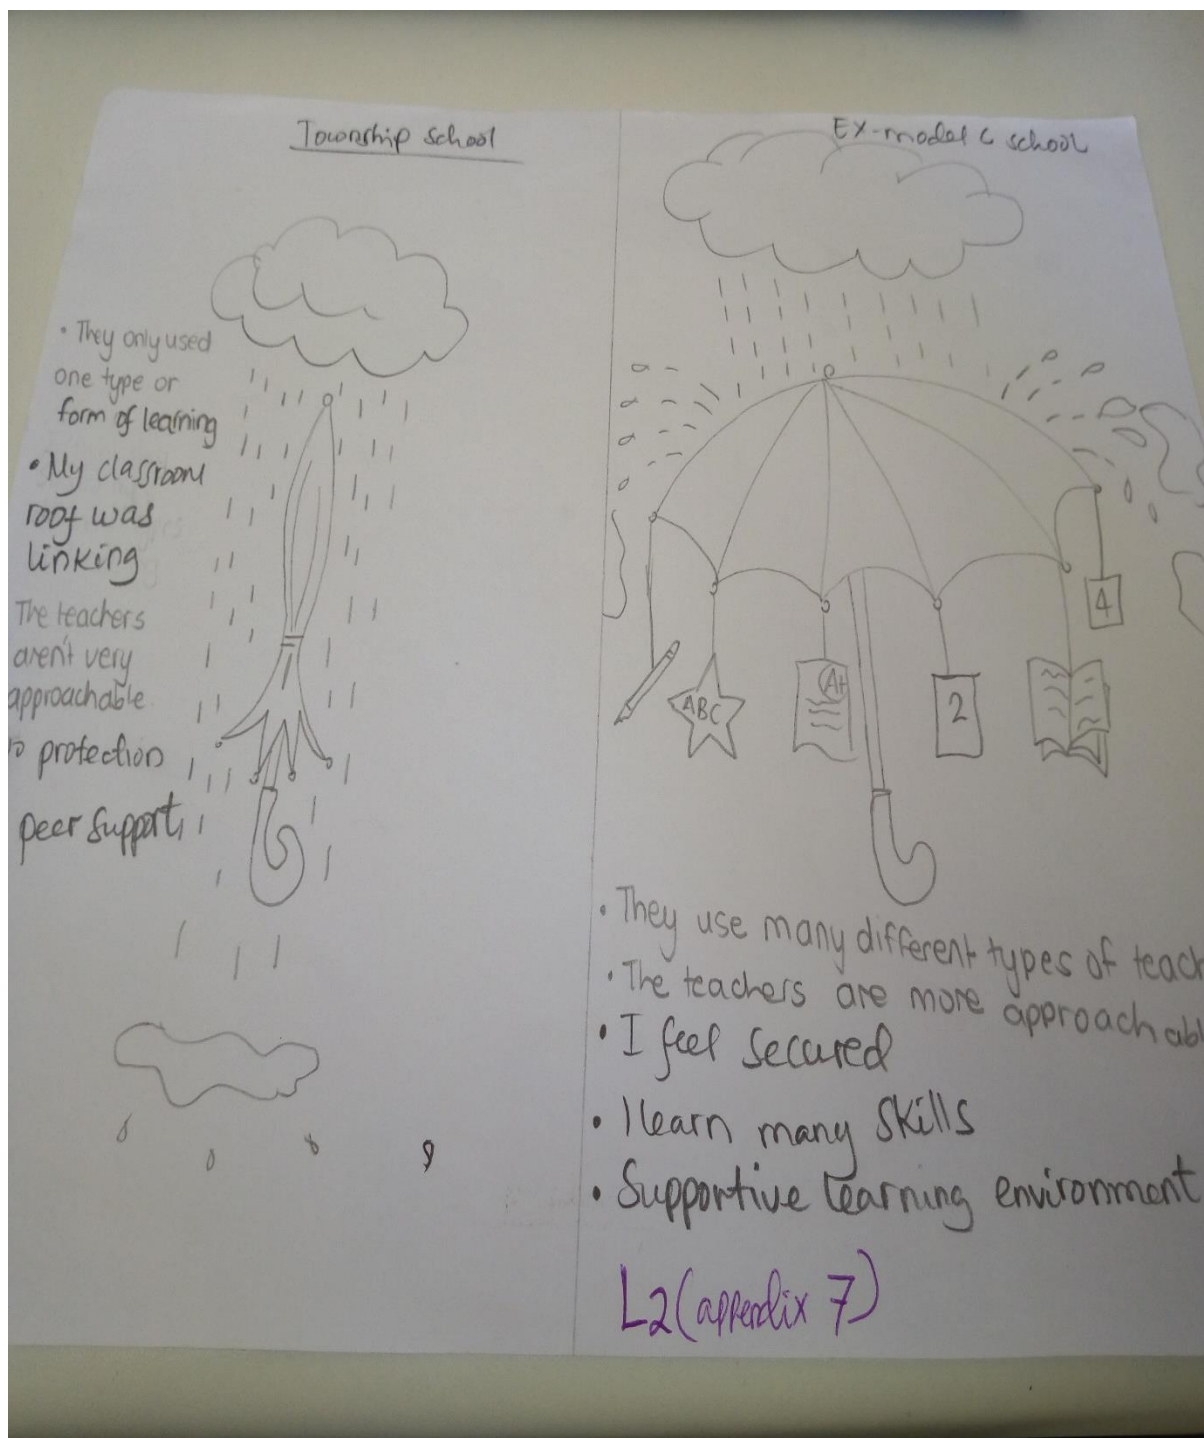 Township school
• They only used
one type or
form of learning
• My classroom
roof was
linking
The teachers
aren't very
approachable
protection
peer support
Ex-model C school
4
ABC
A+
2
• They use many different types of teach
• The teachers are more approachabl
• I feel secured
• I learn many skills
• Supportive learning environment
L2 (appendix 7)